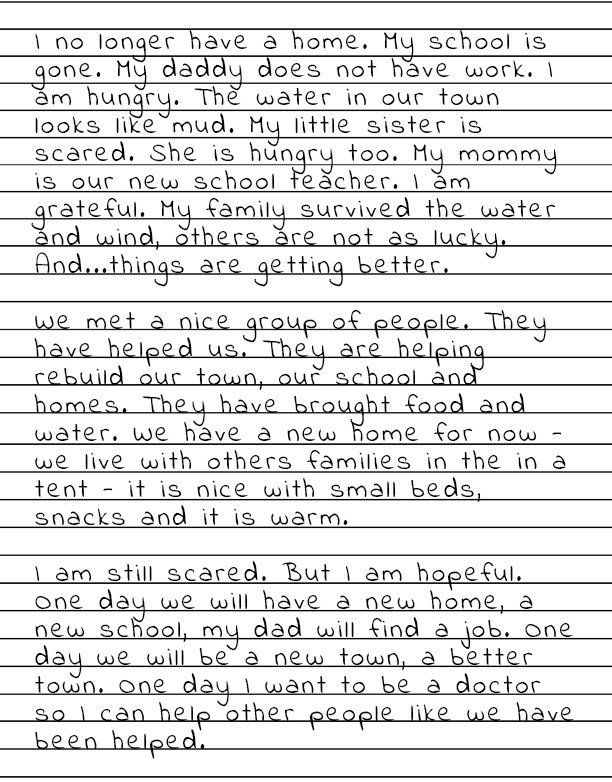 I no longer have a home. My school is
gone. My daddy does not have work. I
am hungry. The water in our town
looks like mud. My little sister is
scared. She is hungry too. My mommy
is our new school teacher. I am
grateful. My family survived the water
and wind, others are not as lucky.
And...things are getting better.

We met a nice group of people. They
have helped us. They are helping
rebuild our town, our school and
homes. They have brought food and
water. We have a new home for now -
we live with others families in the in a
tent - it is nice with small beds,
snacks and it is warm.

I am still scared. But I am hopeful.
One day we will have a new home, a
new school, my dad will find a job. One
day we will be a new town, a better
town. One day I want to be a doctor
so I can help other people like we have
been helped.